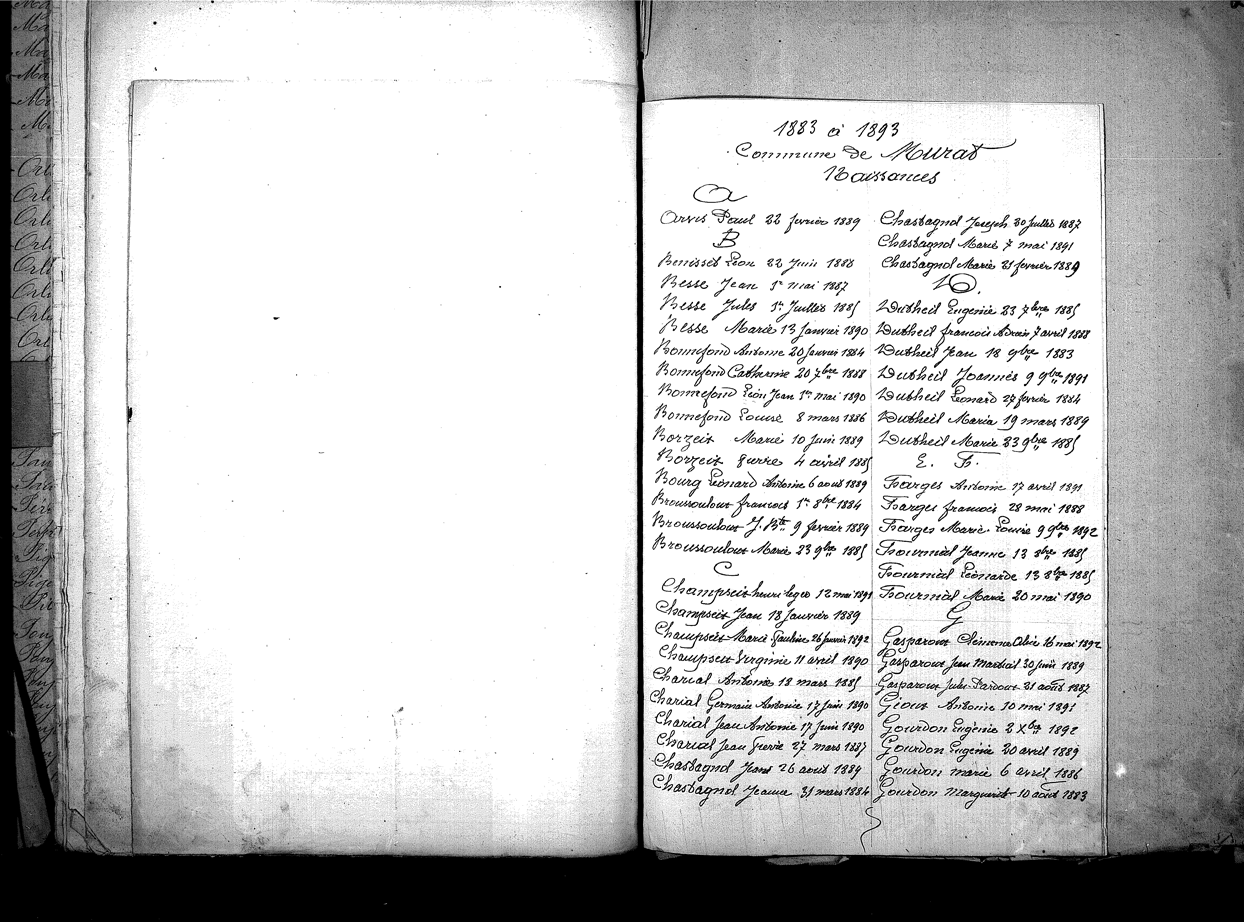 1883 à 1893
Commune de Murat
Naissances
A
Arvis Paul 22 fevrier 1889
B
Benissit Léon 22 Juin 1888
Besse Jean 1er mai 1887
Besse Jules 1er Juillet 1885
Besse Marie 13 Janvier 1890
Bonnefond Antoine 20 Janvier 1884
Bonnefond Catherine 20 7bre 1888
Bonnefond Léon Jean 1er mai 1890
Bonnefond Louise 8 mars 1886
Borzeix Marie 10 Juin 1889
Borzeix Pierre 4 avril 1885
Bourg Léonard Antoine 6 aout 1889
Broussouloux francois 1er 8bre 1884
Broussouloux J. Bte 9 fevrier 1889
Broussouloux Marie 23 9bre 1885
C
Champseix henri 12 mai 1891
Champseix Jean 18 Janvier 1889
Champseix Marie Pauline 26 Janvier 1892
Champseix Virginie 11 avril 1890
Charial Antoine 18 mars 1885
Charial Germain Antoine 17 Juin 1890
Charial Jean Antoine 17 Juin 1890
Charial Jean Pierre 27 mars 1887
Chastagnol Jean 26 août 1889
Chastagnol Jeanne 31 mars 1884
Chastagnol Joseph 30 Juillet 1887
Chastagnol Marie 7 mai 1891
Chastagnol Marie 21 fevrier 1889
D.
Dutheil Eugénie 23 7bre 1885
Dutheil francois 7 avril 1888
Dutheil Jean 18 9bre 1883
Dutheil Joannès 9 9bre 1891
Dutheil Léonard 27 fevrier 1884
Dutheil Maria 19 mars 1889
Dutheil Marie 23 9bre 1885
E. F.
Farges Antoine 17 avril 1891
Farges francois 28 mai 1888
Farges Marie Louise 9 9bre 1892
Fournial Jeanne 13 8bre 1885
Fournial Léonarde 13 8bre 1885
Fournial Marie 20 mai 1890
G
Gasparoux 16 mai 1892
Gasparoux Jean Martial 30 Juin 1889
Gasparoux Jules Pardoux 21 août 1887
Gioux Antoine 10 mai 1891
Gourdon Eugénie 2 Xbre 1892
Gourdon Eugénie 20 avril 1889
Gourdon marie 6 avril 1886
Gourdon Marguerite 10 août 1883